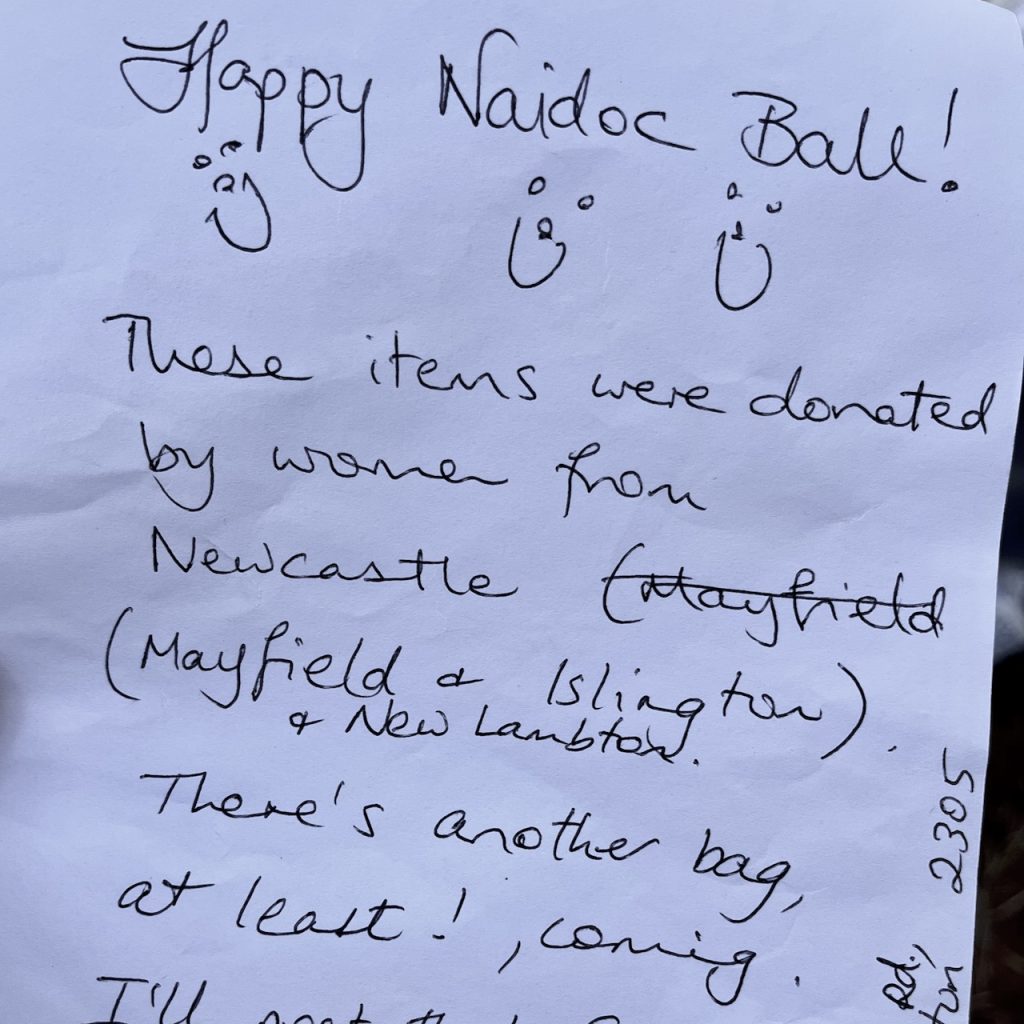 Happy Naidoc Ball!
These items were donated
by women from
Newcastle (Mayfield
(Mayfield & Islington).
& New Lambton.
There's another bag,
at least!, coming.
I'll
Rd,
2305